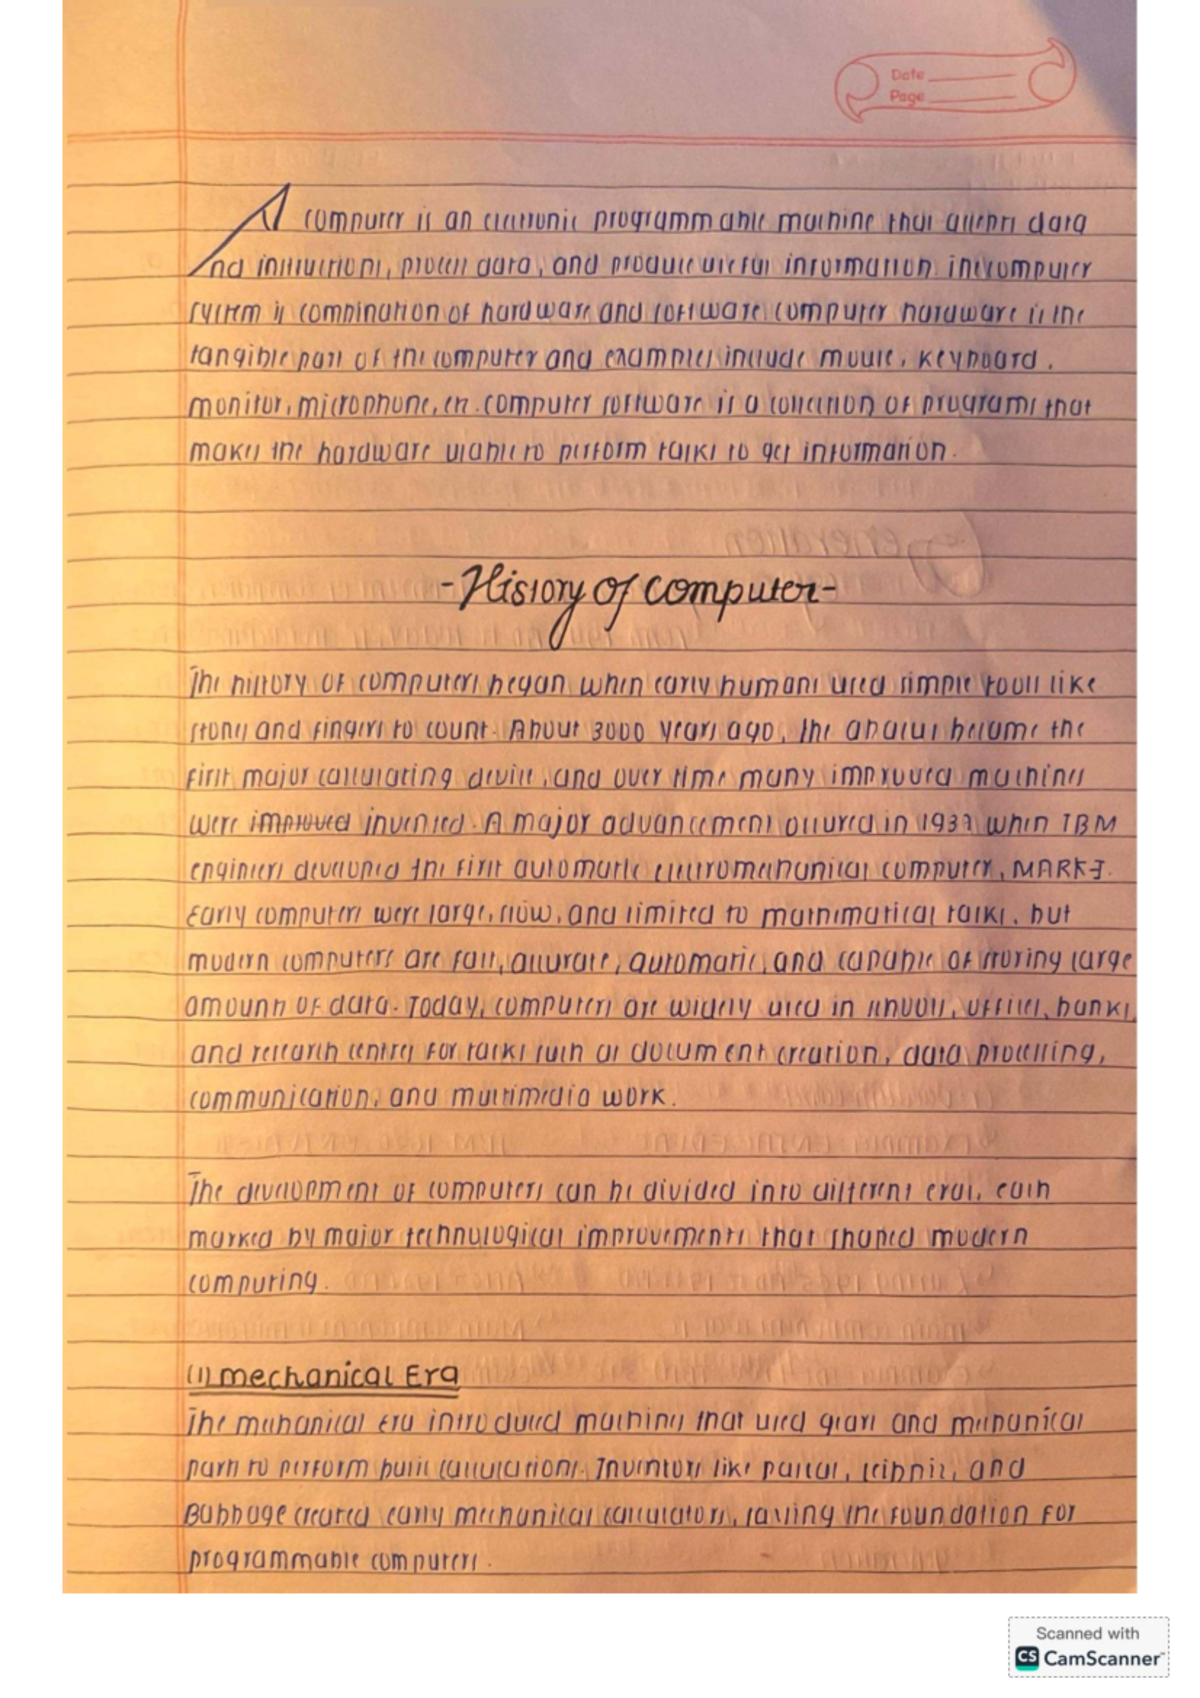 Date
Page
A computer is an electronic programmable machine that accepts data
and instructions, process data, and produce useful information. The computer
system is combination of hardware and software. computer hardware is the
tangible part of the computer and examples include mouse, keyboard,
monitor, microphone, etc. computer software is a collection of programs that
makes the hardware usable to perform tasks to get information.
-History of computer-
The history of computers began when early humans used simple tools like
stones and fingers to count. About 3000 years ago, the abacus became the
first major calculating device, and over time many improved machines
were improved invented. A major advancement occured in 1937 when IBM
engineers developed the first automatic electromechanical computer, MARK-I.
Early computers were large, slow, and limited to mathematical tasks, but
modern computers are fast, accurate, automatic, and capable of storing large
amounts of data. Today, computers are widely used in schools, offices, banks,
and research centres for tasks such as document creation, data processing,
communication, and multimedia work.
The development of computers can be divided into different eras, each
marked by major technological improvements that shaped modern
computing.
(1) mechanical Era
The mechanical era introduced machines that used gears and mechanical
parts to perform basic calculations. Inventors like pascal, leibniz, and
Babbage created early mechanical calculators, laying the foundation for
programmable computers.
Scanned with
CS CamScanner